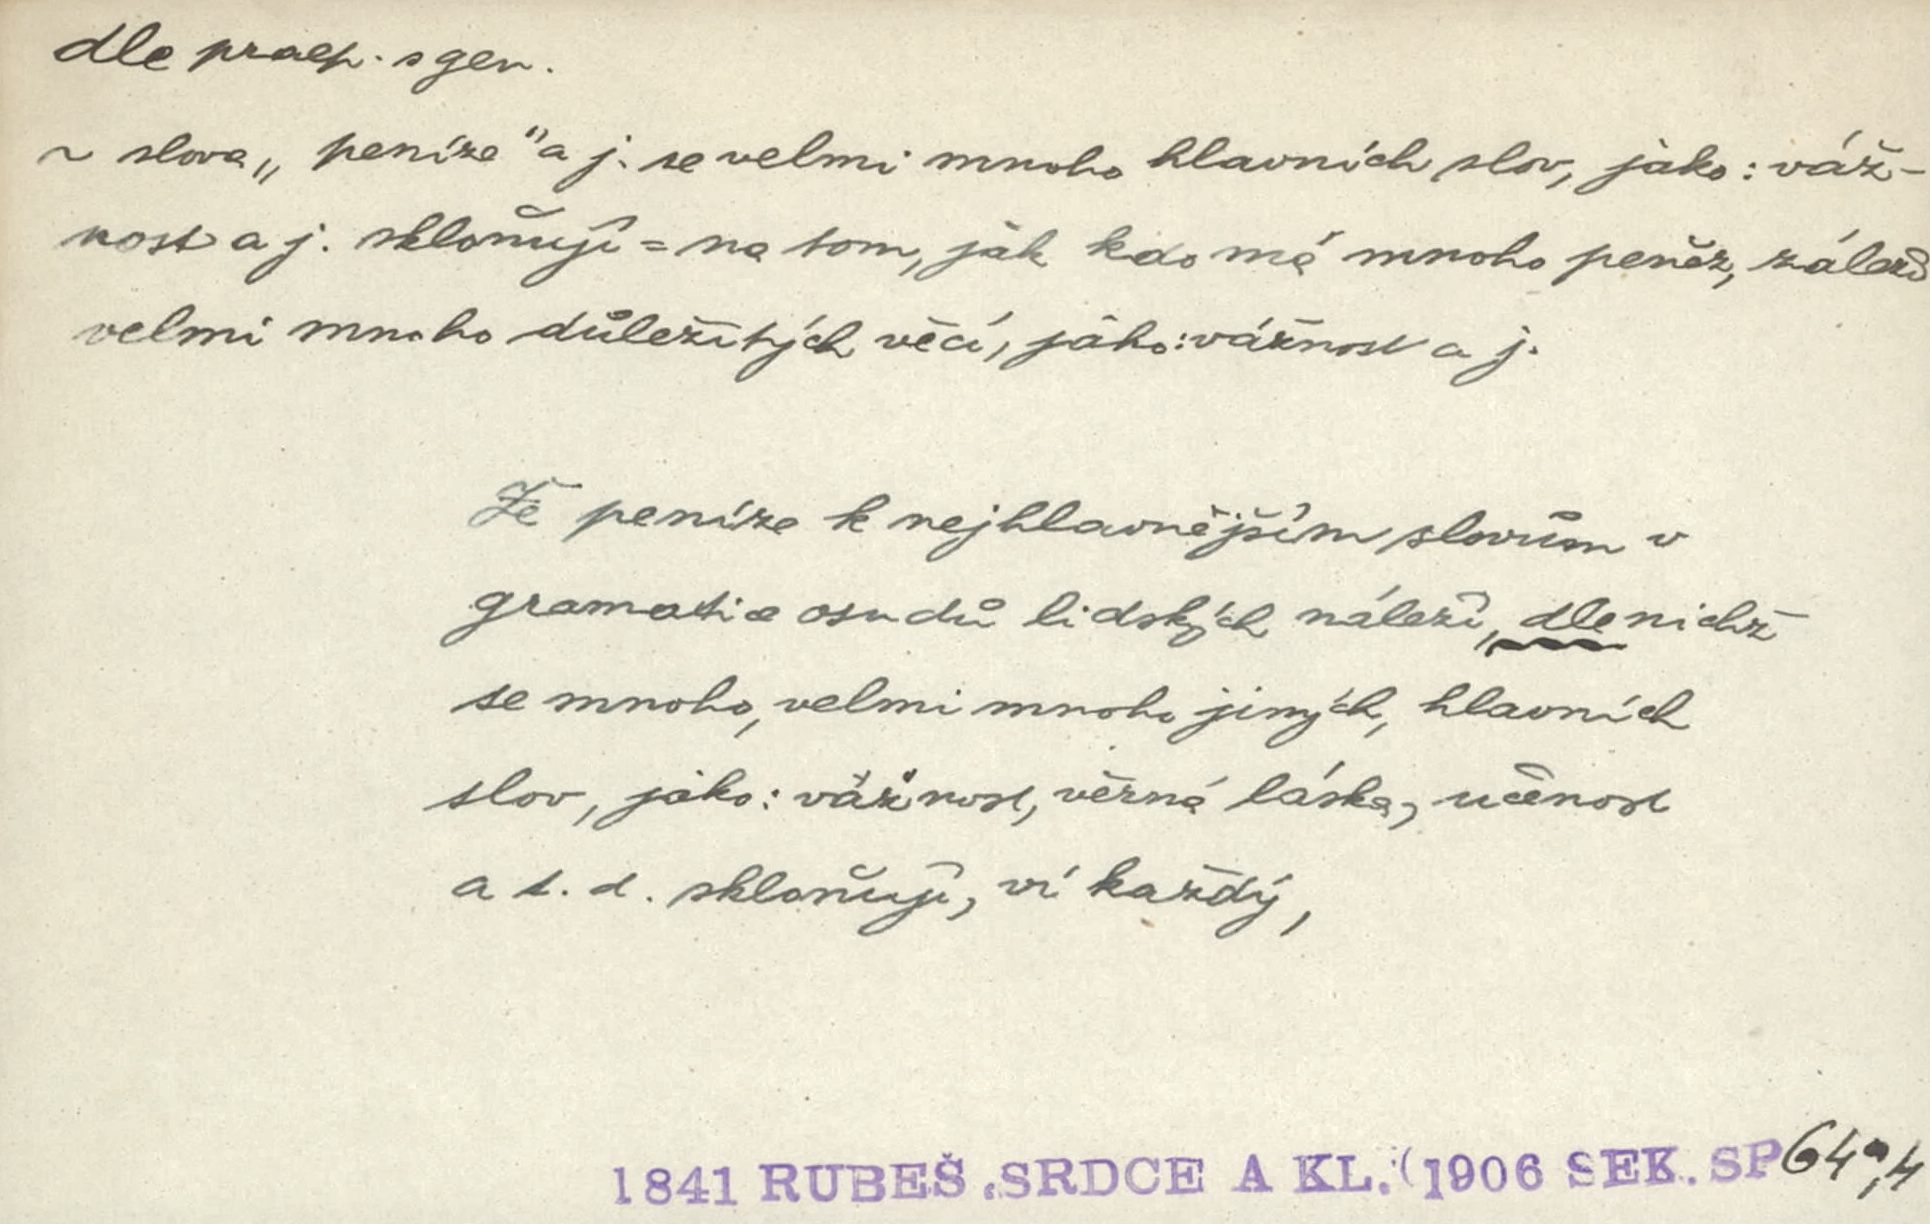 dle praep. s gen.
~ slova „peníze" a j. se velmi mnoho hlavních slov, jako: váž-
nost a j. skloňují = na tom, jak kdo má mnoho peněz, záleží
velmi mnoho důležitých věcí, jako: vážnost a j.
Že peníze k nejhlavnějším slovům v
gramatice osudů lidských náleží, dle nichž
se mnoho, velmi mnoho jiných, hlavních
slov, jako: vážnost, věrná láska, učenost
a t. d. skloňují, ví každý,
1841 RUBEŠ .SRDCE A KL. (1906 SEK. SP 64a,4